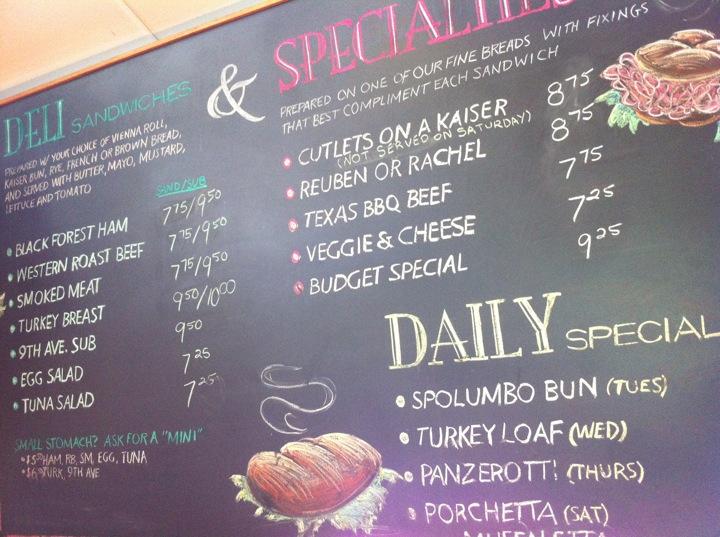 DELI SANDWICHES
PREPARED W/ YOUR CHOICE OF VIENNA ROLL,
KAISER BUN, RYE, FRENCH OR BROWN BREAD,
AND SERVED WITH BUTTER, MAYO, MUSTARD,
LETTUCE AND TOMATO
SAND/SUB
• BLACK FOREST HAM 7 75/9 50
• WESTERN ROAST BEEF 7 75/9 50
• SMOKED MEAT 7 75/9 50
• TURKEY BREAST 9 50/10 00
• 9TH AVE. SUB 9 50
• EGG SALAD 7 25
• TUNA SALAD 7 25
SMALL STOMACH? ASK FOR A "MINI"
HAM, RB, SM, EGG, TUNA
TURK, 9TH AVE
&
SPECIALTIES
PREPARED ON ONE OF OUR FINE BREADS WITH FIXINGS
THAT BEST COMPLIMENT EACH SANDWICH
• CUTLETS ON A KAISER 8 75
(NOT SERVED ON SATURDAY)
• REUBEN OR RACHEL 8 75
• TEXAS BBQ BEEF 7 75
• VEGGIE & CHEESE 7 25
• BUDGET SPECIAL 9 25
DAILY SPECIAL
• SPOLUMBO BUN (TUES)
• TURKEY LOAF (WED)
• PANZEROTTI (THURS)
• PORCHETTA (SAT)